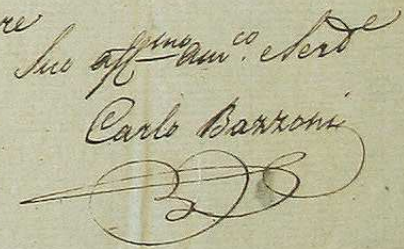 re
Suo aff.mo am.co e Ser.de
Carlo Bazzoni